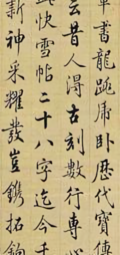 軍書龍跳虎卧歷代寶傳
云昔人得古刻數行專心
此快雪帖二十八字迄今千
新神采耀發豈鐫拓鉤